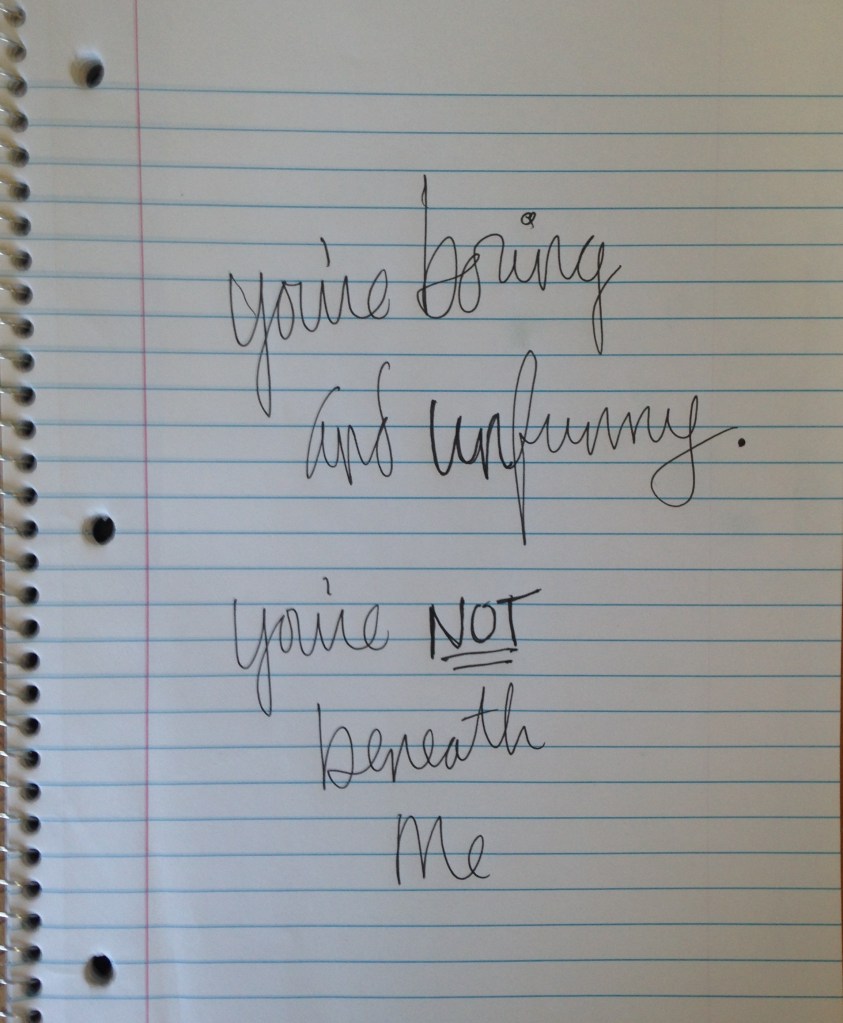 you're boring
and unfunny.
you're NOT
beneath
me